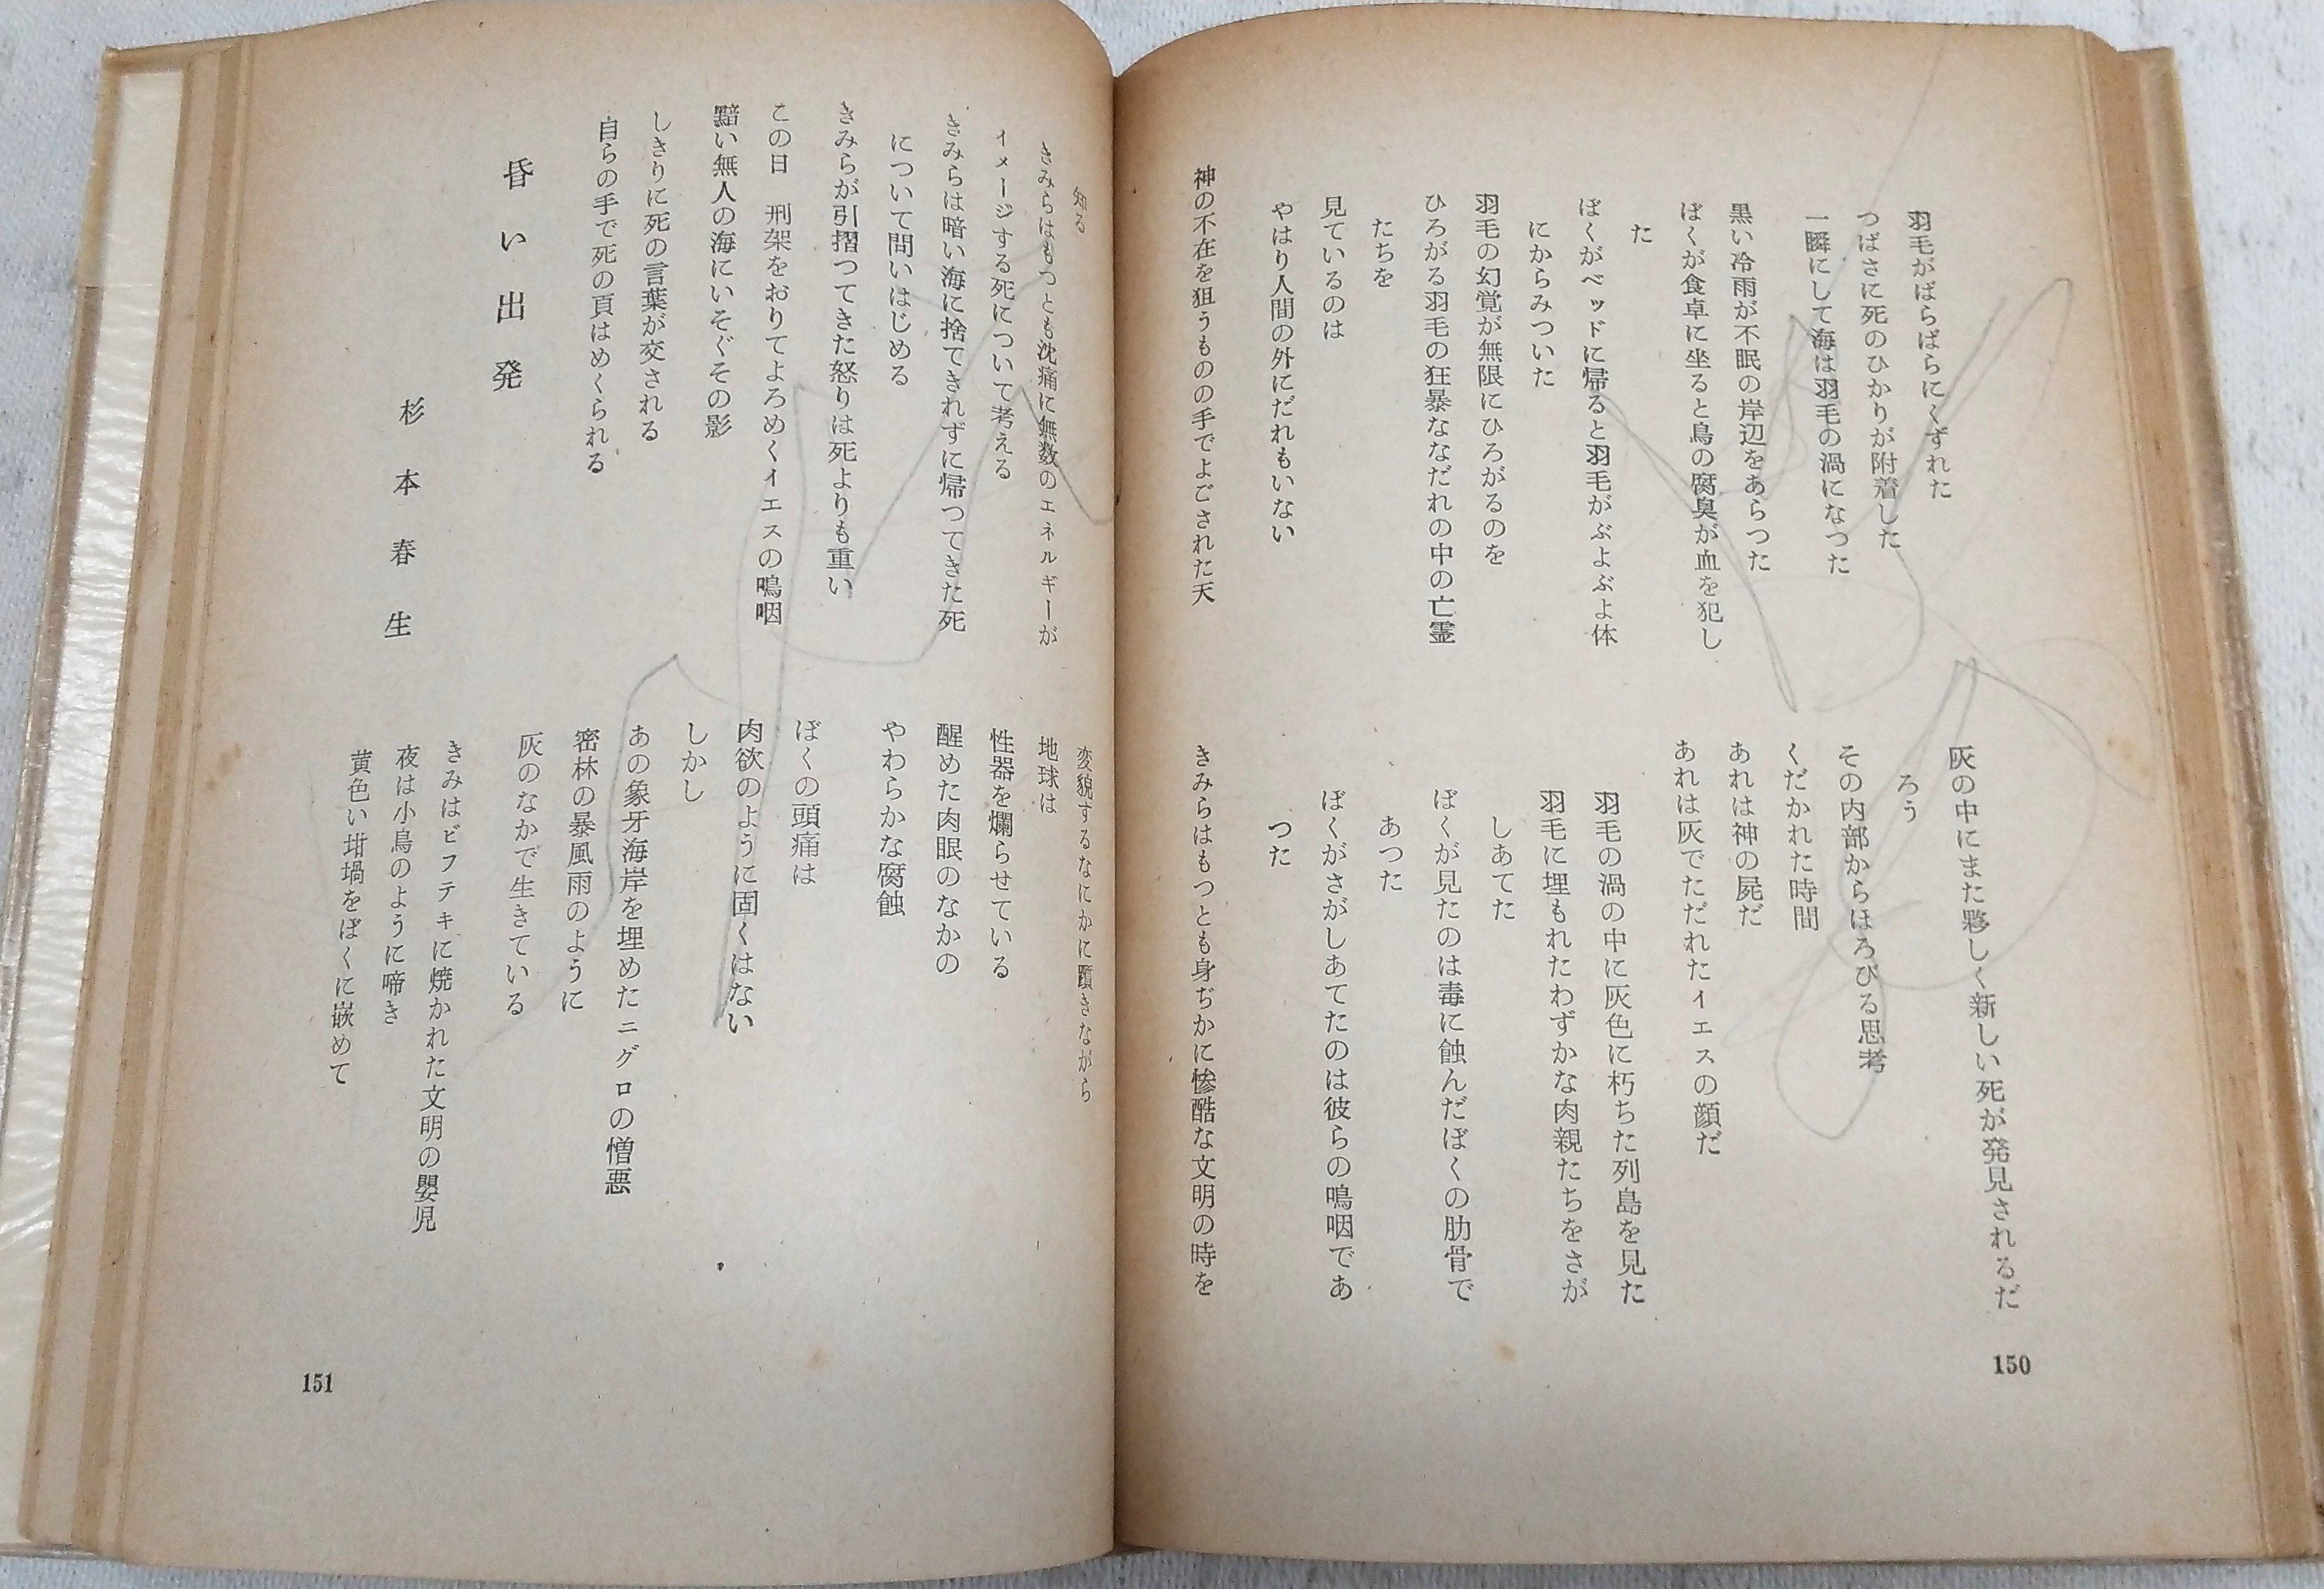 羽毛がばらばらにくずれた
つばさに死のひかりが附着した
一瞬にして海は羽毛の渦になつた
黒い冷雨が不眠の岸辺をあらつた
ぼくが食卓に坐ると鳥の腐臭が血を犯し
た
ぼくがベッドに帰ると羽毛がぶよぶよ体
にからみついた
羽毛の幻覚が無限にひろがるのを
ひろがる羽毛の狂暴ななだれの中の亡霊
たちを
見ているのは
やはり人間の外にだれもいない
神の不在を狙うものの手でよごされた天
灰の中にまた夥しく新しい死が発見されるだ
ろう
その内部からほろびる思考
くだかれた時間
あれは神の屍だ
あれは灰でただれたイエスの顔だ
羽毛の渦の中に灰色に朽ちた列島を見た
羽毛に埋もれたわずかな肉親たちをさが
しあてた
ぼくが見たのは毒に蝕んだぼくの肋骨で
あつた
ぼくがさがしあてたのは彼らの嗚咽であ
つた
きみらはもつとも身ぢかに惨酷な文明の時を
150
知る
きみらはもつとも沈痛に無数のエネルギーが
イメージする死について考える
きみらは暗い海に捨てきれずに帰つてきた死
について問いはじめる
きみらが引摺つてきた怒りは死よりも重い
この日 刑架をおりてよろめくイエスの嗚咽
黯い無人の海にいそぐその影
しきりに死の言葉が交される
自らの手で死の頁はめくられる
昏い出発
杉本春生
変貌するなにかに躓きながら
地球は
性器を爛らせている
醒めた肉眼のなかの
やわらかな腐蝕
ぼくの頭痛は
肉欲のように固くはない
しかし
あの象牙海岸を埋めたニグロの憎悪
密林の暴風雨のように
灰のなかで生きている
きみはビフテキに焼かれた文明の嬰児
夜は小鳥のように啼き
黄色い坩堝をぼくに嵌めて
151